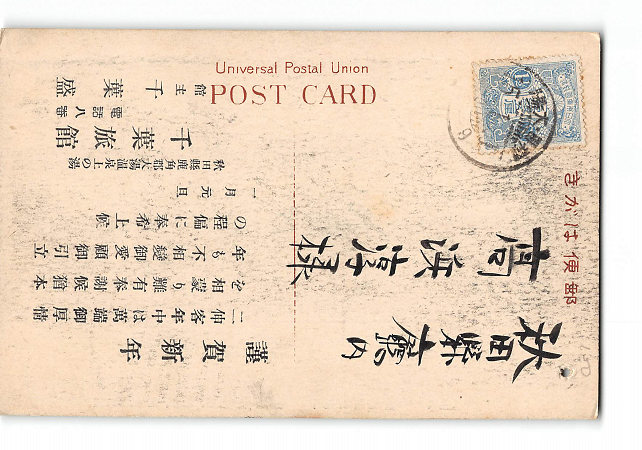 Universal Postal Union
POST CARD
郵便はがき
秋田縣廳内
謹賀新年
二伸客年中は萬端御厚情
を相蒙り難有奉謝候猶本
年も不相變御愛顧御引立
の程偏に奉希上候
一月元旦
秋田縣鹿角郡大湯温泉の上の湯
千葉旅館
電話八番
館主 千葉盛